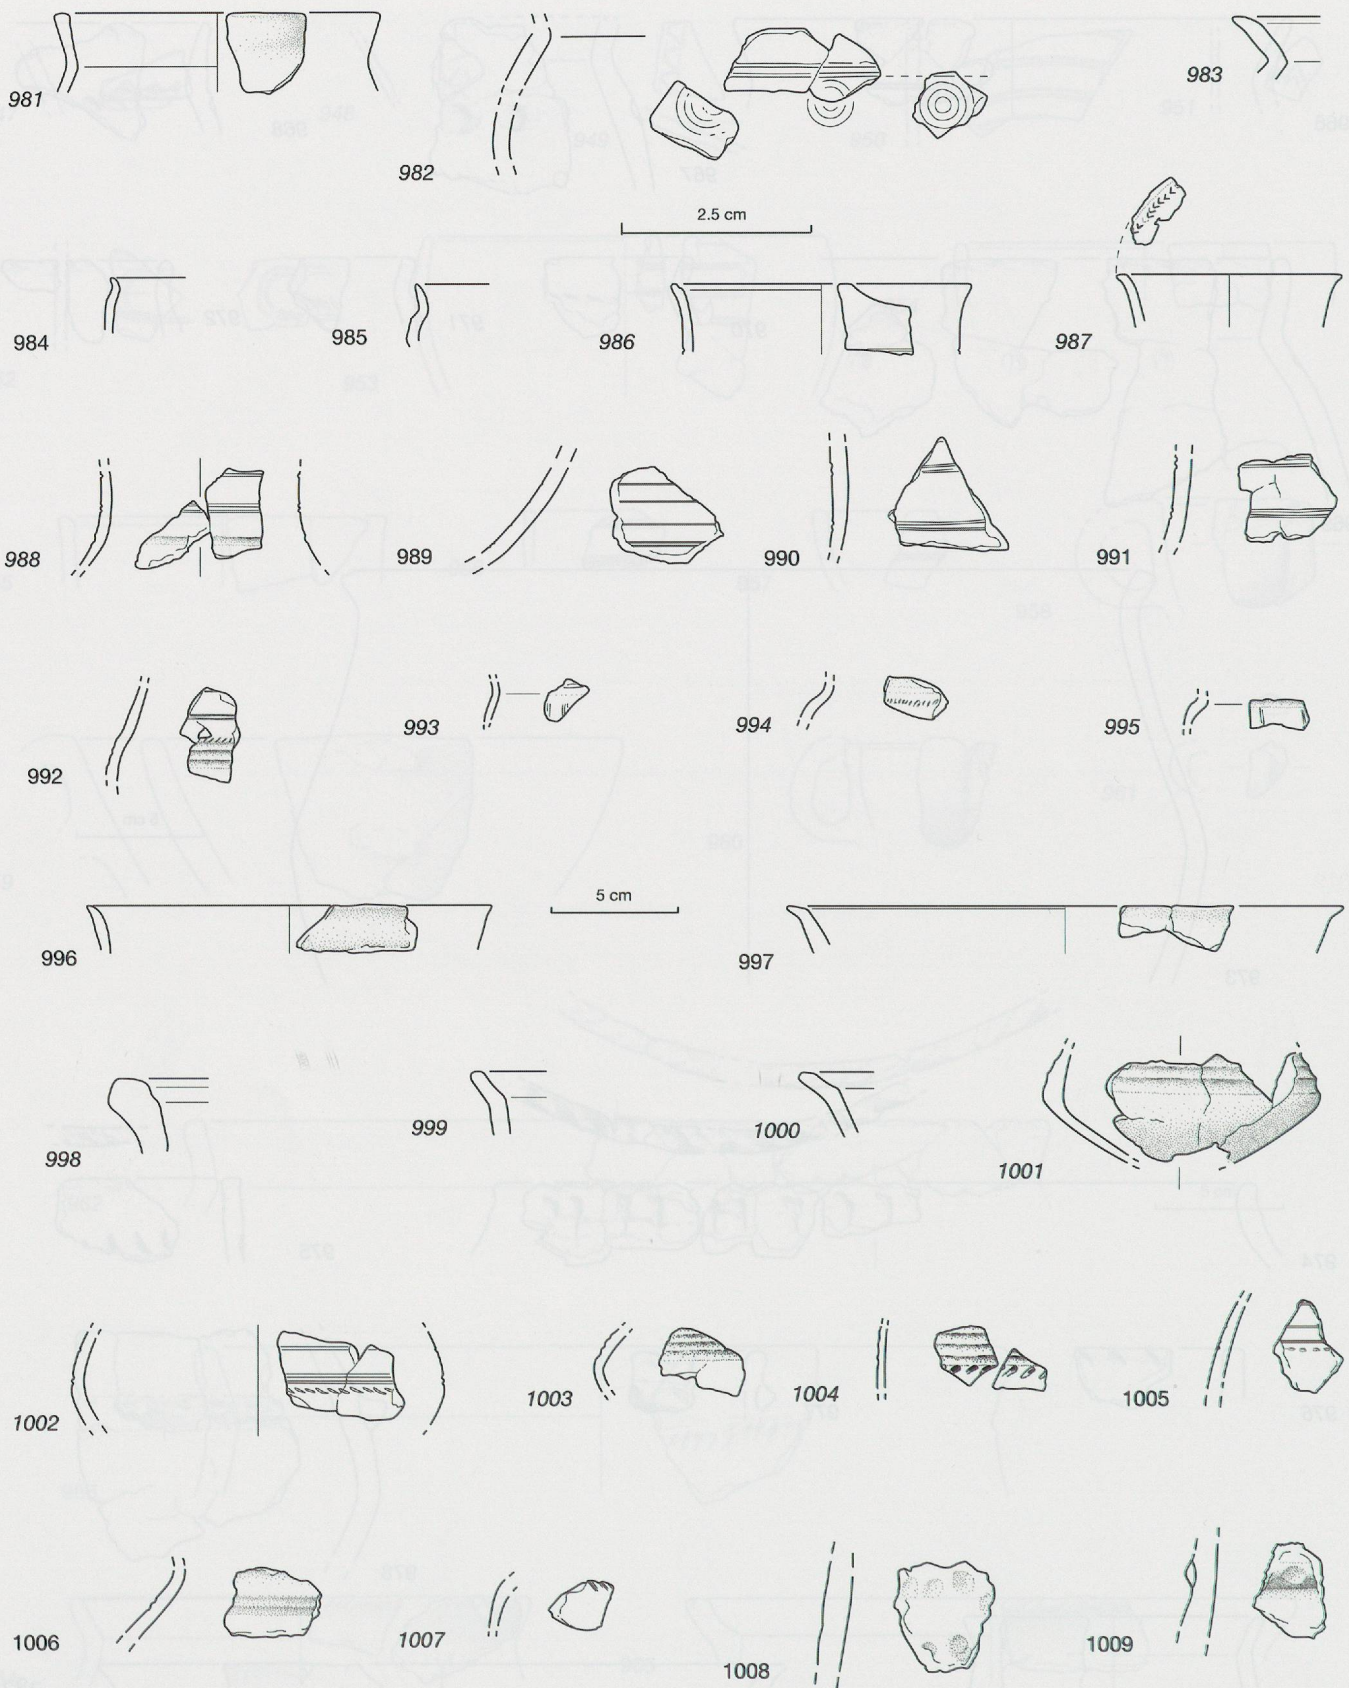 981
982
983
2.5 cm
984
985
986
987
988
989
990
991
992
993
994
995
5 cm
996
997
998
999
1000
1001
1002
1003
1004
1005
1006
1007
1008
1009